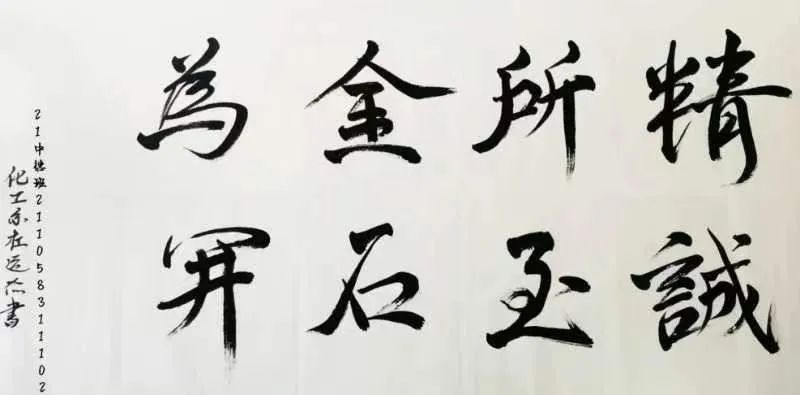 精誠
所至
金石
為開
21中德班211058311102
化工系在运杰書